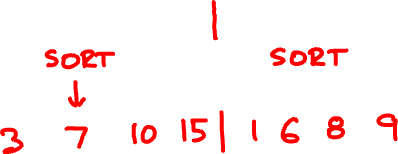 SORT SORT
3 7 10 15 | 1 6 8 9